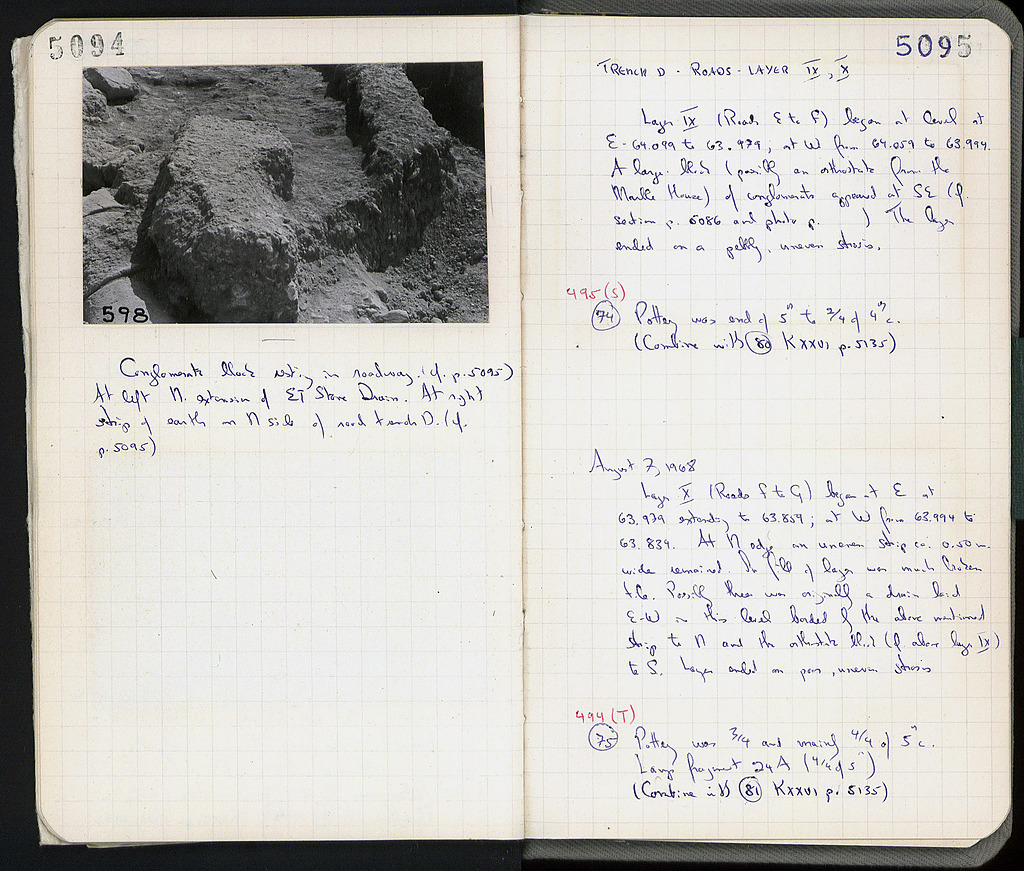 5094
598
Conglomerate block resting in roadway. (cf. p. 5095)
At left N. extension of ET Stone Drain. At right
strip of earth on N side of road trench D. (cf.
p. 5095)
5095
TRENCH D - ROADS - LAYER IX, X
Layer IX (Roads E to F) began at level at
E - 64.099 to 63.979; at W from 64.059 to 63.994.
A large block (possibly an orthostate from the
Marble House) of conglomerate appeared at SE (cf.
section p. 5086 and photo p.     ) The layer
ended on a pebbly, uneven strosis.
495 (S)
74 Pottery was end of 5th to 2/4 of 4th c.
(Combine with 80 KXXVI p. 5135)
August 7, 1968
Layer X (Roads F to G) began at E at
63.979 extending to 63.859; at W from 63.994 to
63.839. At N edge an uneven strip ca. 0.50 m.
wide remained. In fill of layer was much broken
t.c. Possibly there was originally a drain laid
E-W in this level bordered by the above mentioned
strip to N and the orthostate block (cf above layer IX)
to S. Layer ended on poor, uneven strosis
494 (T)
75 Pottery was 3/4 and mainly 4/4 of 5th c.
Lamp fragment 24A (4/4 of 5th)
(Combine with 81 KXXVI p. 5135)